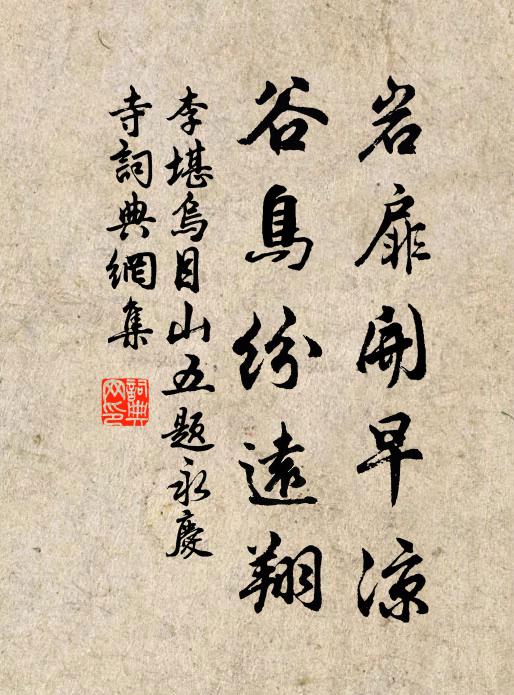 岩扉開早涼
谷鳥紛遠翔
李堪烏目山五題永慶
寺詞典網集
詞典
网印